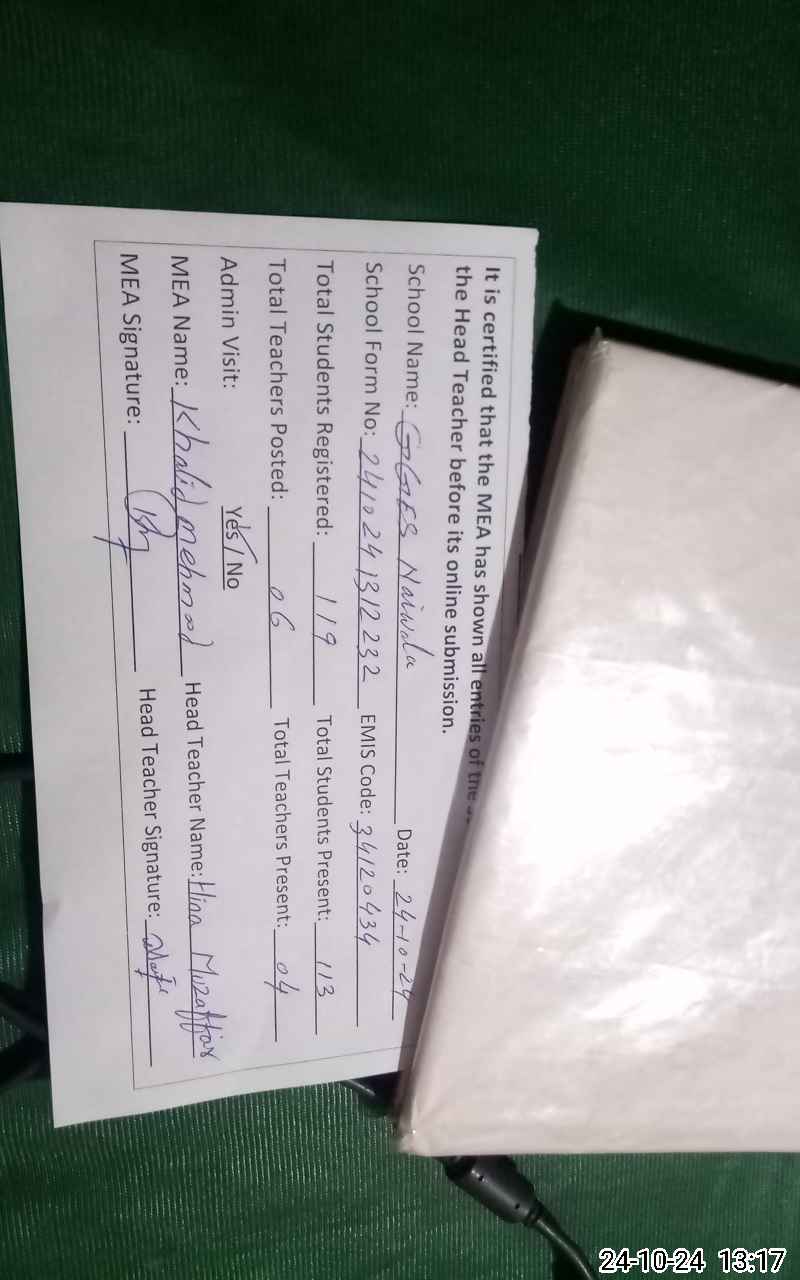 It is certified that the MEA has shown all entries of the
the Head Teacher before its online submission.
School Name: GGES Naiwala Date: 24-10-24
School Form No: 2410241312232 EMIS Code: 34120434
Total Students Registered: 119 Total Students Present: 113
Total Teachers Posted: 06 Total Teachers Present: 04
Admin Visit: Yes / No
MEA Name: Khalid mehmood Head Teacher Name: Hina Muzaffar
MEA Signature: Head Teacher Signature:
24-10-24 13:17